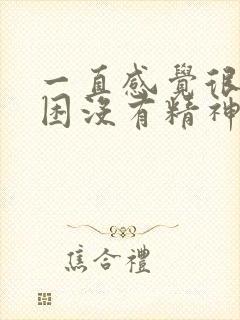 一直感覺很
困沒有精神
焦合禮